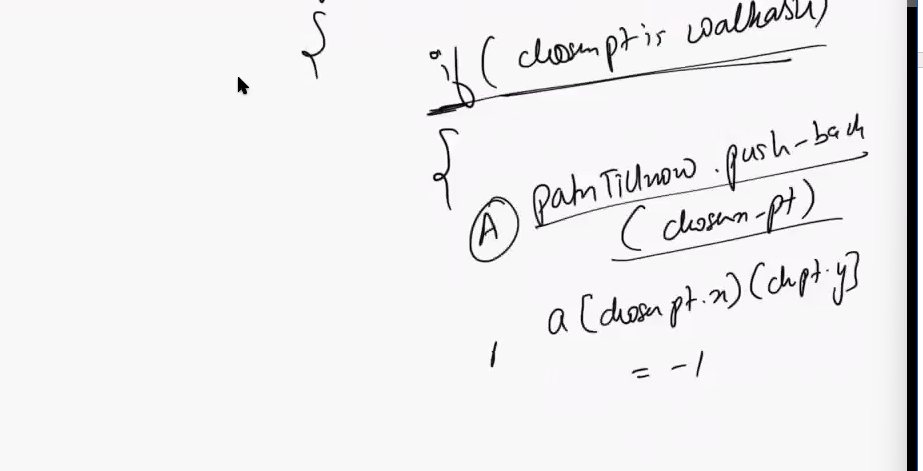 {
if ( chosen pt is walkable)
{
A pathTillnow . push-back
( chosen-pt)
a [chosen pt.x) (chpt.y]
= -1